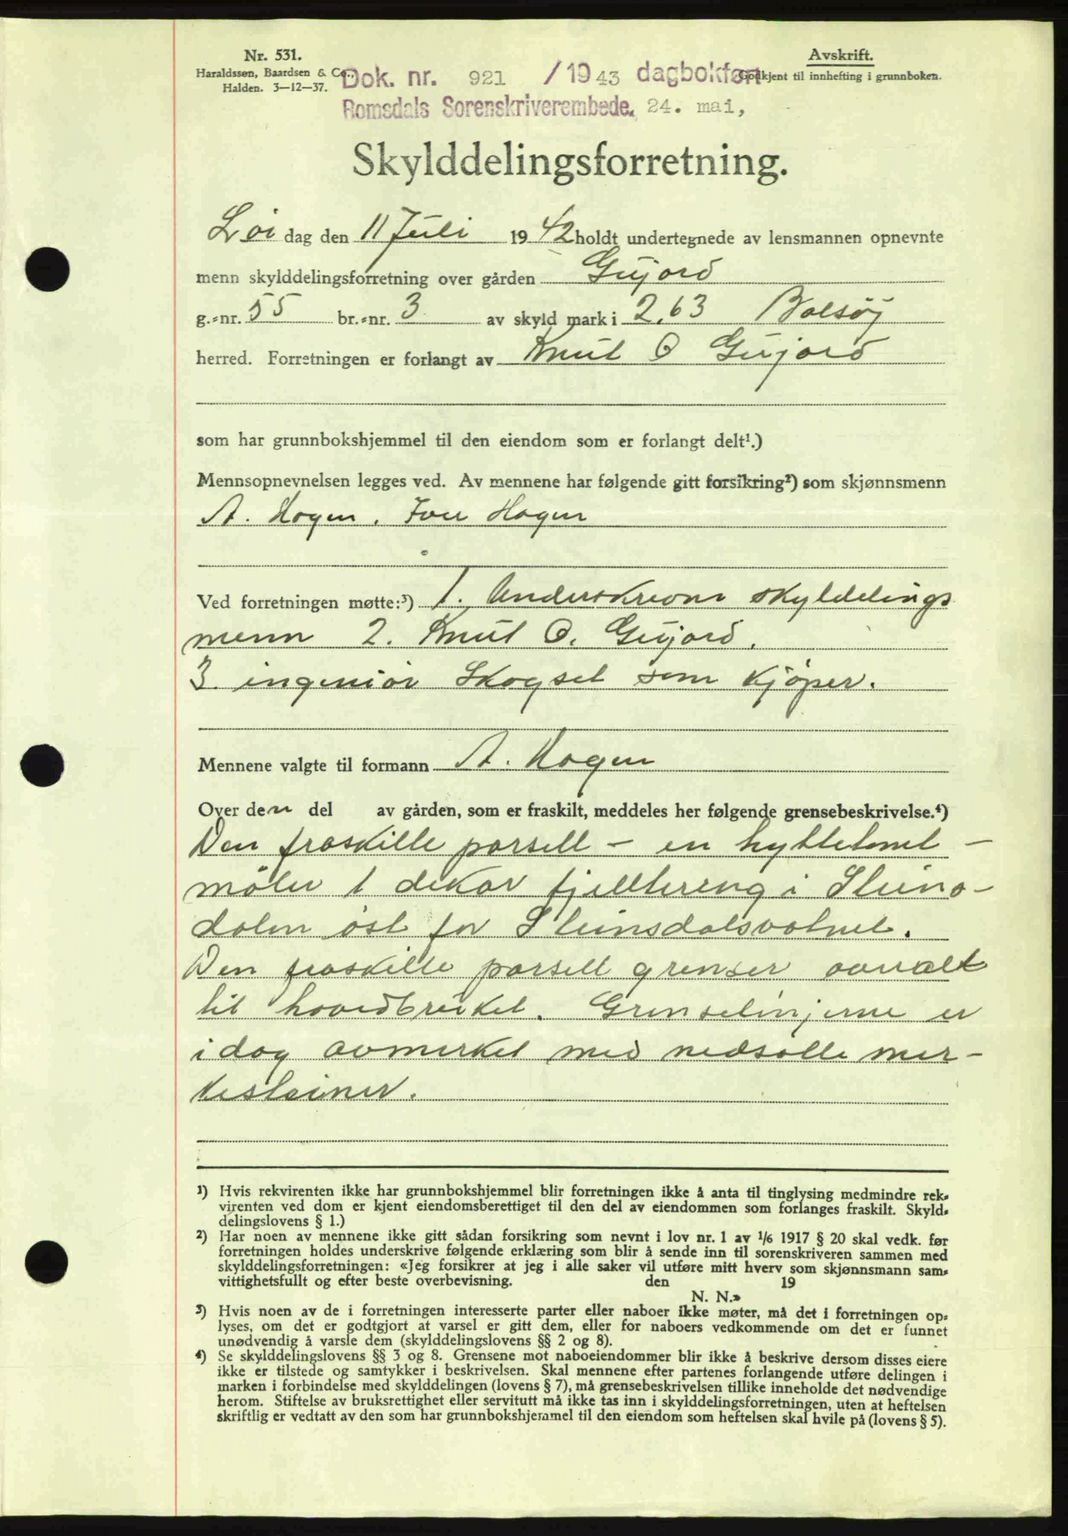 Nr. 531.
Haraldssen, Baardsen & Co.,
Halden. 3—12—37.
Avskrift.
Godkjent til innhefting i grunnboken.
Dok. nr. 921 /1943 dagbokført
Romsdals Sorenskriverembede. 24. mai,
Skylddelingsforretning.
Lör dag den 11 Juli 1942 holdt undertegnede av lensmannen opnevnte
menn skylddelingsforretning over gården Gujord
g.-nr. 55 br.-nr. 3 av skyld mark i 2,63 Bolsöy
herred. Forretningen er forlangt av Knut O Gujord
som har grunnbokshjemmel til den eiendom som er forlangt delt¹.)
Mennsopnevnelsen legges ved. Av mennene har følgende gitt forsikring²) som skjønnsmenn
A. Hagen. Iver Hagen
Ved forretningen møtte:³) 1. Underskrevne skylddelings
menn 2. Knut O. Gujord.
3 ingeniör Skogset som kjöper.
Mennene valgte til formann A. Hagen
Over den del av gården, som er fraskilt, meddeles her følgende grensebeskrivelse.⁴)
Den fraskilte parsell – en hyttetomt –
måler 1 dekar fjellterreng i Steins-
dalen öst for Steinsdalsvatnet.
Den fraskilte parsell grenser overalt
til hovedbruket. Grenselinjerne er
i dag avmerket med nedsatte mer-
kesteiner.
¹) Hvis rekvirenten ikke har grunnbokshjemmel blir forretningen ikke å anta til tinglysing medmindre rek-
virenten ved dom er kjent eiendomsberettiget til den del av eiendommen som forlanges fraskilt. Skyld-
delingslovens § 1.)
²) Har noen av mennene ikke gitt sådan forsikring som nevnt i lov nr. 1 av 1/6 1917 § 20 skal vedk. før
forretningen holdes underskrive følgende erklæring som blir å sende inn til sorenskriveren sammen med
skylddelingsforretningen: «Jeg forsikrer at jeg i alle saker vil utføre mitt hverv som skjønnsmann sam-
vittighetsfullt og efter beste overbevisning. den 19
N. N.»
³) Hvis noen av de i forretningen interesserte parter eller naboer ikke møter, må det i forretningen op-
lyses, om det er godtgjort at varsel er gitt dem, eller for naboers vedkommende om det er funnet
unødvendig å varsle dem (skylddelingslovens §§ 2 og 8).
⁴) Se skylddelingslovens §§ 3 og 8. Grensene mot naboeiendommer blir ikke å beskrive dersom disses eiere
ikke er tilstede og samtykker i beskrivelsen. Skal mennene efter partenes forlangende utføre delingen i
marken i forbindelse med skylddelingen (lovens § 7), må grensebeskrivelsen tillike inneholde det nødvendige
herom. Stiftelse av bruksrettighet eller servitutt må ikke tas inn i skylddelingsforretningen, uten at heftelsen
skriftlig er vedtatt av den som har grunnbokshjemmel til den eiendom som heftelsen skal hvile på (lovens § 5).